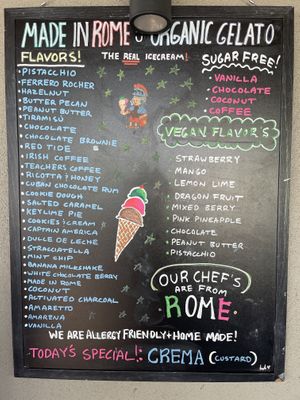 MADE IN ROME'S ORGANIC GELATO
FLAVORS!
THE REAL ICECREAM!
PISTACCHIO
FERRERO ROCHER
HAZELNUT
BUTTER PECAN
PEANUT BUTTER
TIRAMISU
CHOCOLATE
CHOCOLATE BROWNIE
RED TIDE
IRISH COFFEE
TEACHERS COFFEE
RICOTTA & HONEY
CUBAN CHOCOLATE RUM
COOKIE DOUGH
SALTED CARAMEL
KEYLIME PIE
COOKIES & CREAM
CAPTAIN AMERICA
DULCE DE LECHE
STRACCIATELLA
MINT CHIP
BANANA MILKSHAKE
WHITE CHOCOLATE BERRY
MADE IN ROME
COCONUT
ACTIVATED CHARCOAL
AMARETTO
AMARENA
VANILLA
SUGAR FREE!
VANILLA
CHOCOLATE
COCONUT
COFFEE
VEGAN FLAVORS
STRAWBERRY
MANGO
LEMON LIME
DRAGON FRUIT
MIXED BERRY
PINK PINEAPPLE
CHOCOLATE
PEANUT BUTTER
PISTACCHIO
OUR CHEF'S
ARE FROM
ROME
WE ARE ALLERGY FRIENDLY + HOME MADE!
TODAY'S SPECIAL!: CREMA (CUSTARD)